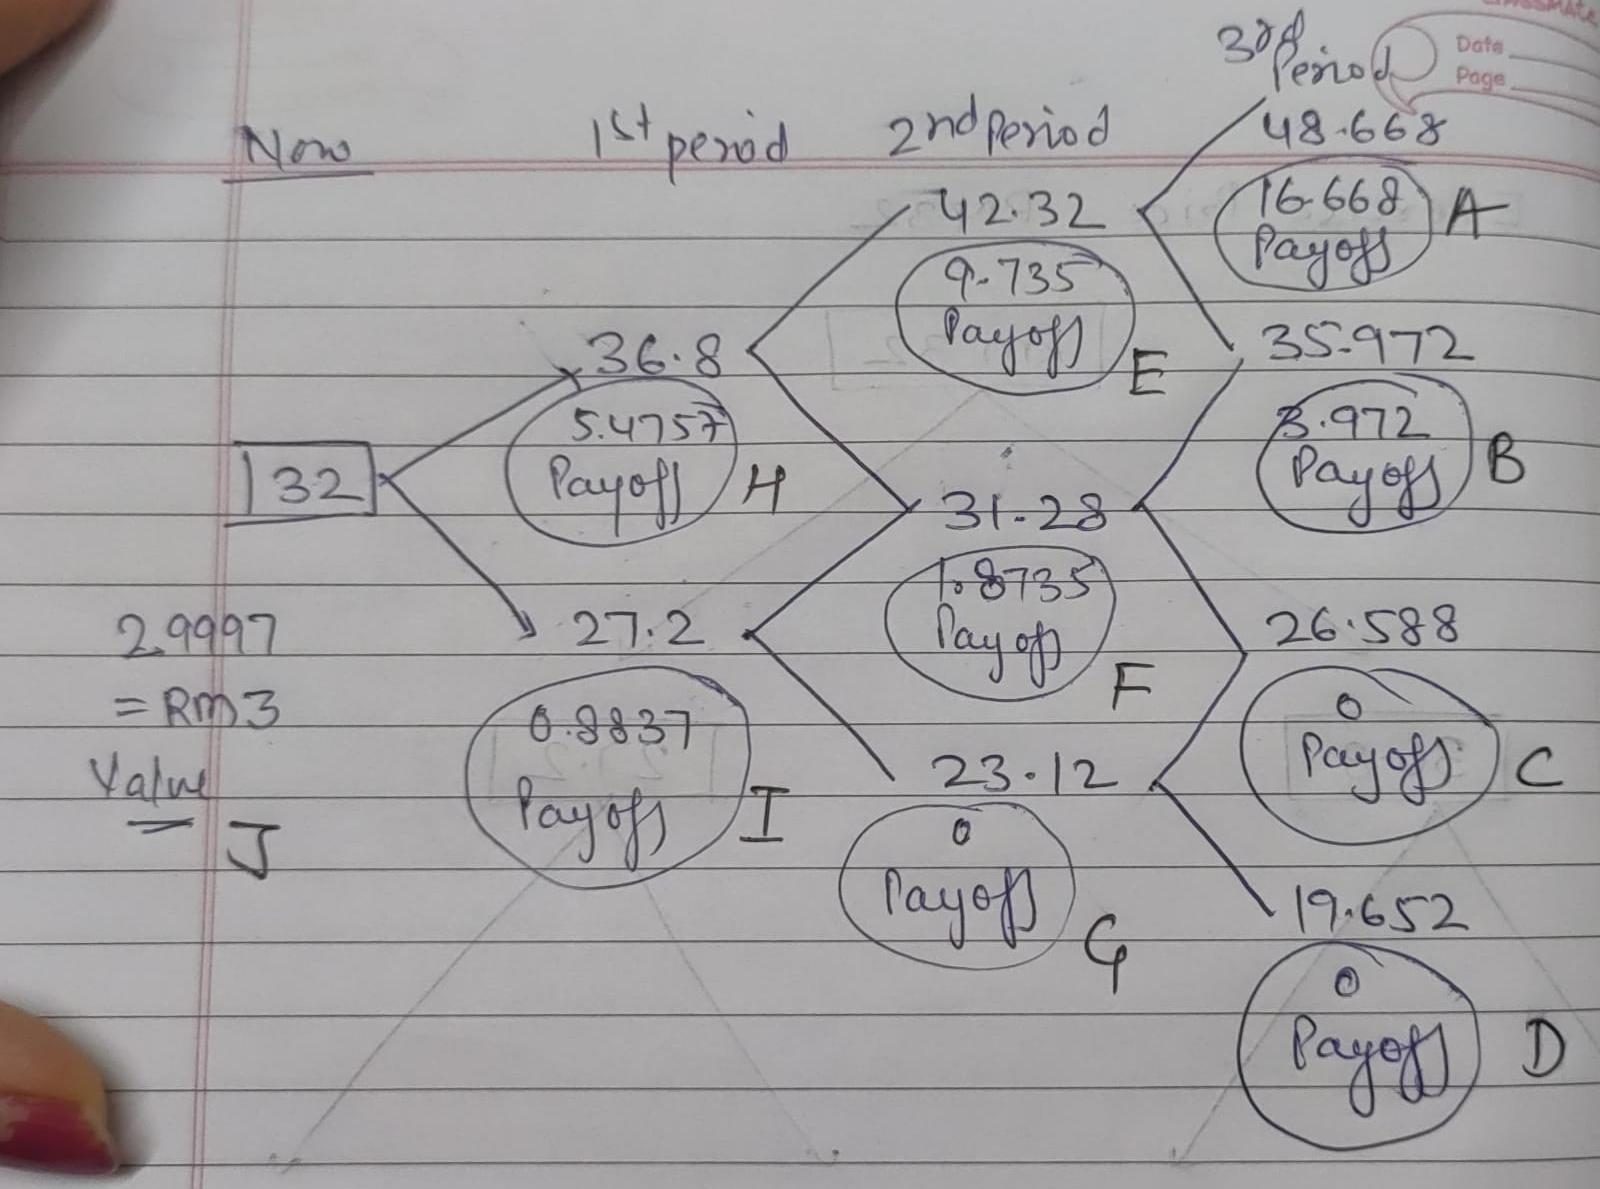 classmate
Date
Page
Now
1st period
2nd Period
3rd Period
132
36.8
5.4757
Payoff
H
27.2
0.8837
Payoff
I
42.32
9.735
Payoff
E
31.28
1.8735
Payoff
F
23.12
0
Payoff
G
48.668
16.668
Payoff
A
35.972
3.972
Payoff
B
26.588
0
Payoff
C
19.652
0
Payoff
D
2.9997
= RM3
Value
J